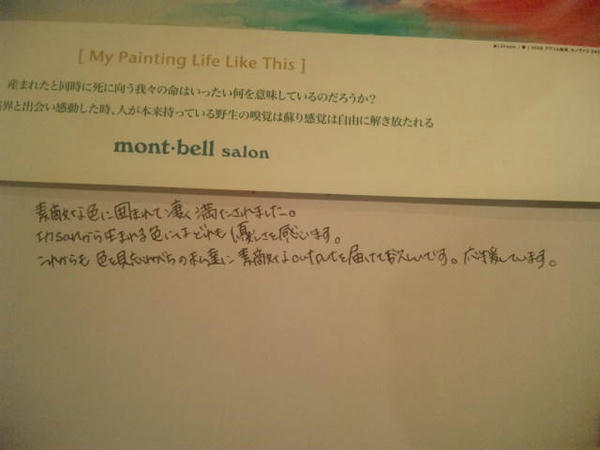 [ My Painting Life Like This ]
産まれたと同時に死に向う我々の命はいったい何を意味しているのだろうか?
界と出会い感動した時、人が本来持っている野生の嗅覚は蘇り感覚は自由に解き放たれる
mont・bell salon
素敵な色に囲まれて凄く満たされました。
sanから生まれる色にはどれも優しさを感じます。
これからも色を見忘れがちの私達に素敵なoutputを届けて欲しいです。応援しています。